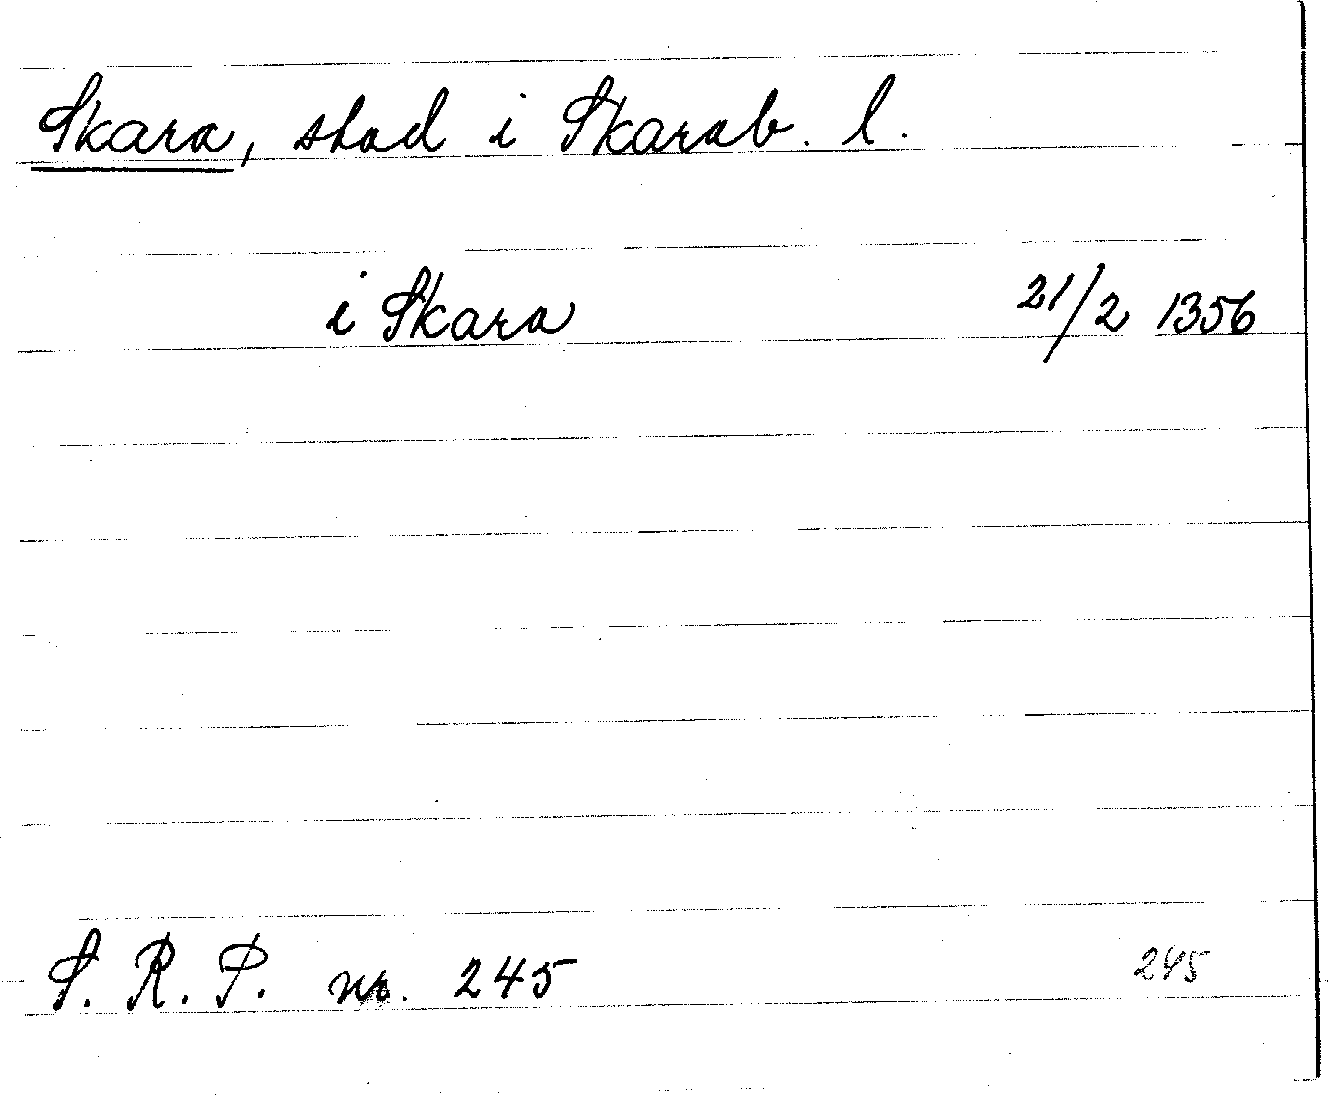 Skara, stad i Skarab. l.
i Skara 21/2 1356
S. R. P. nr. 245 245